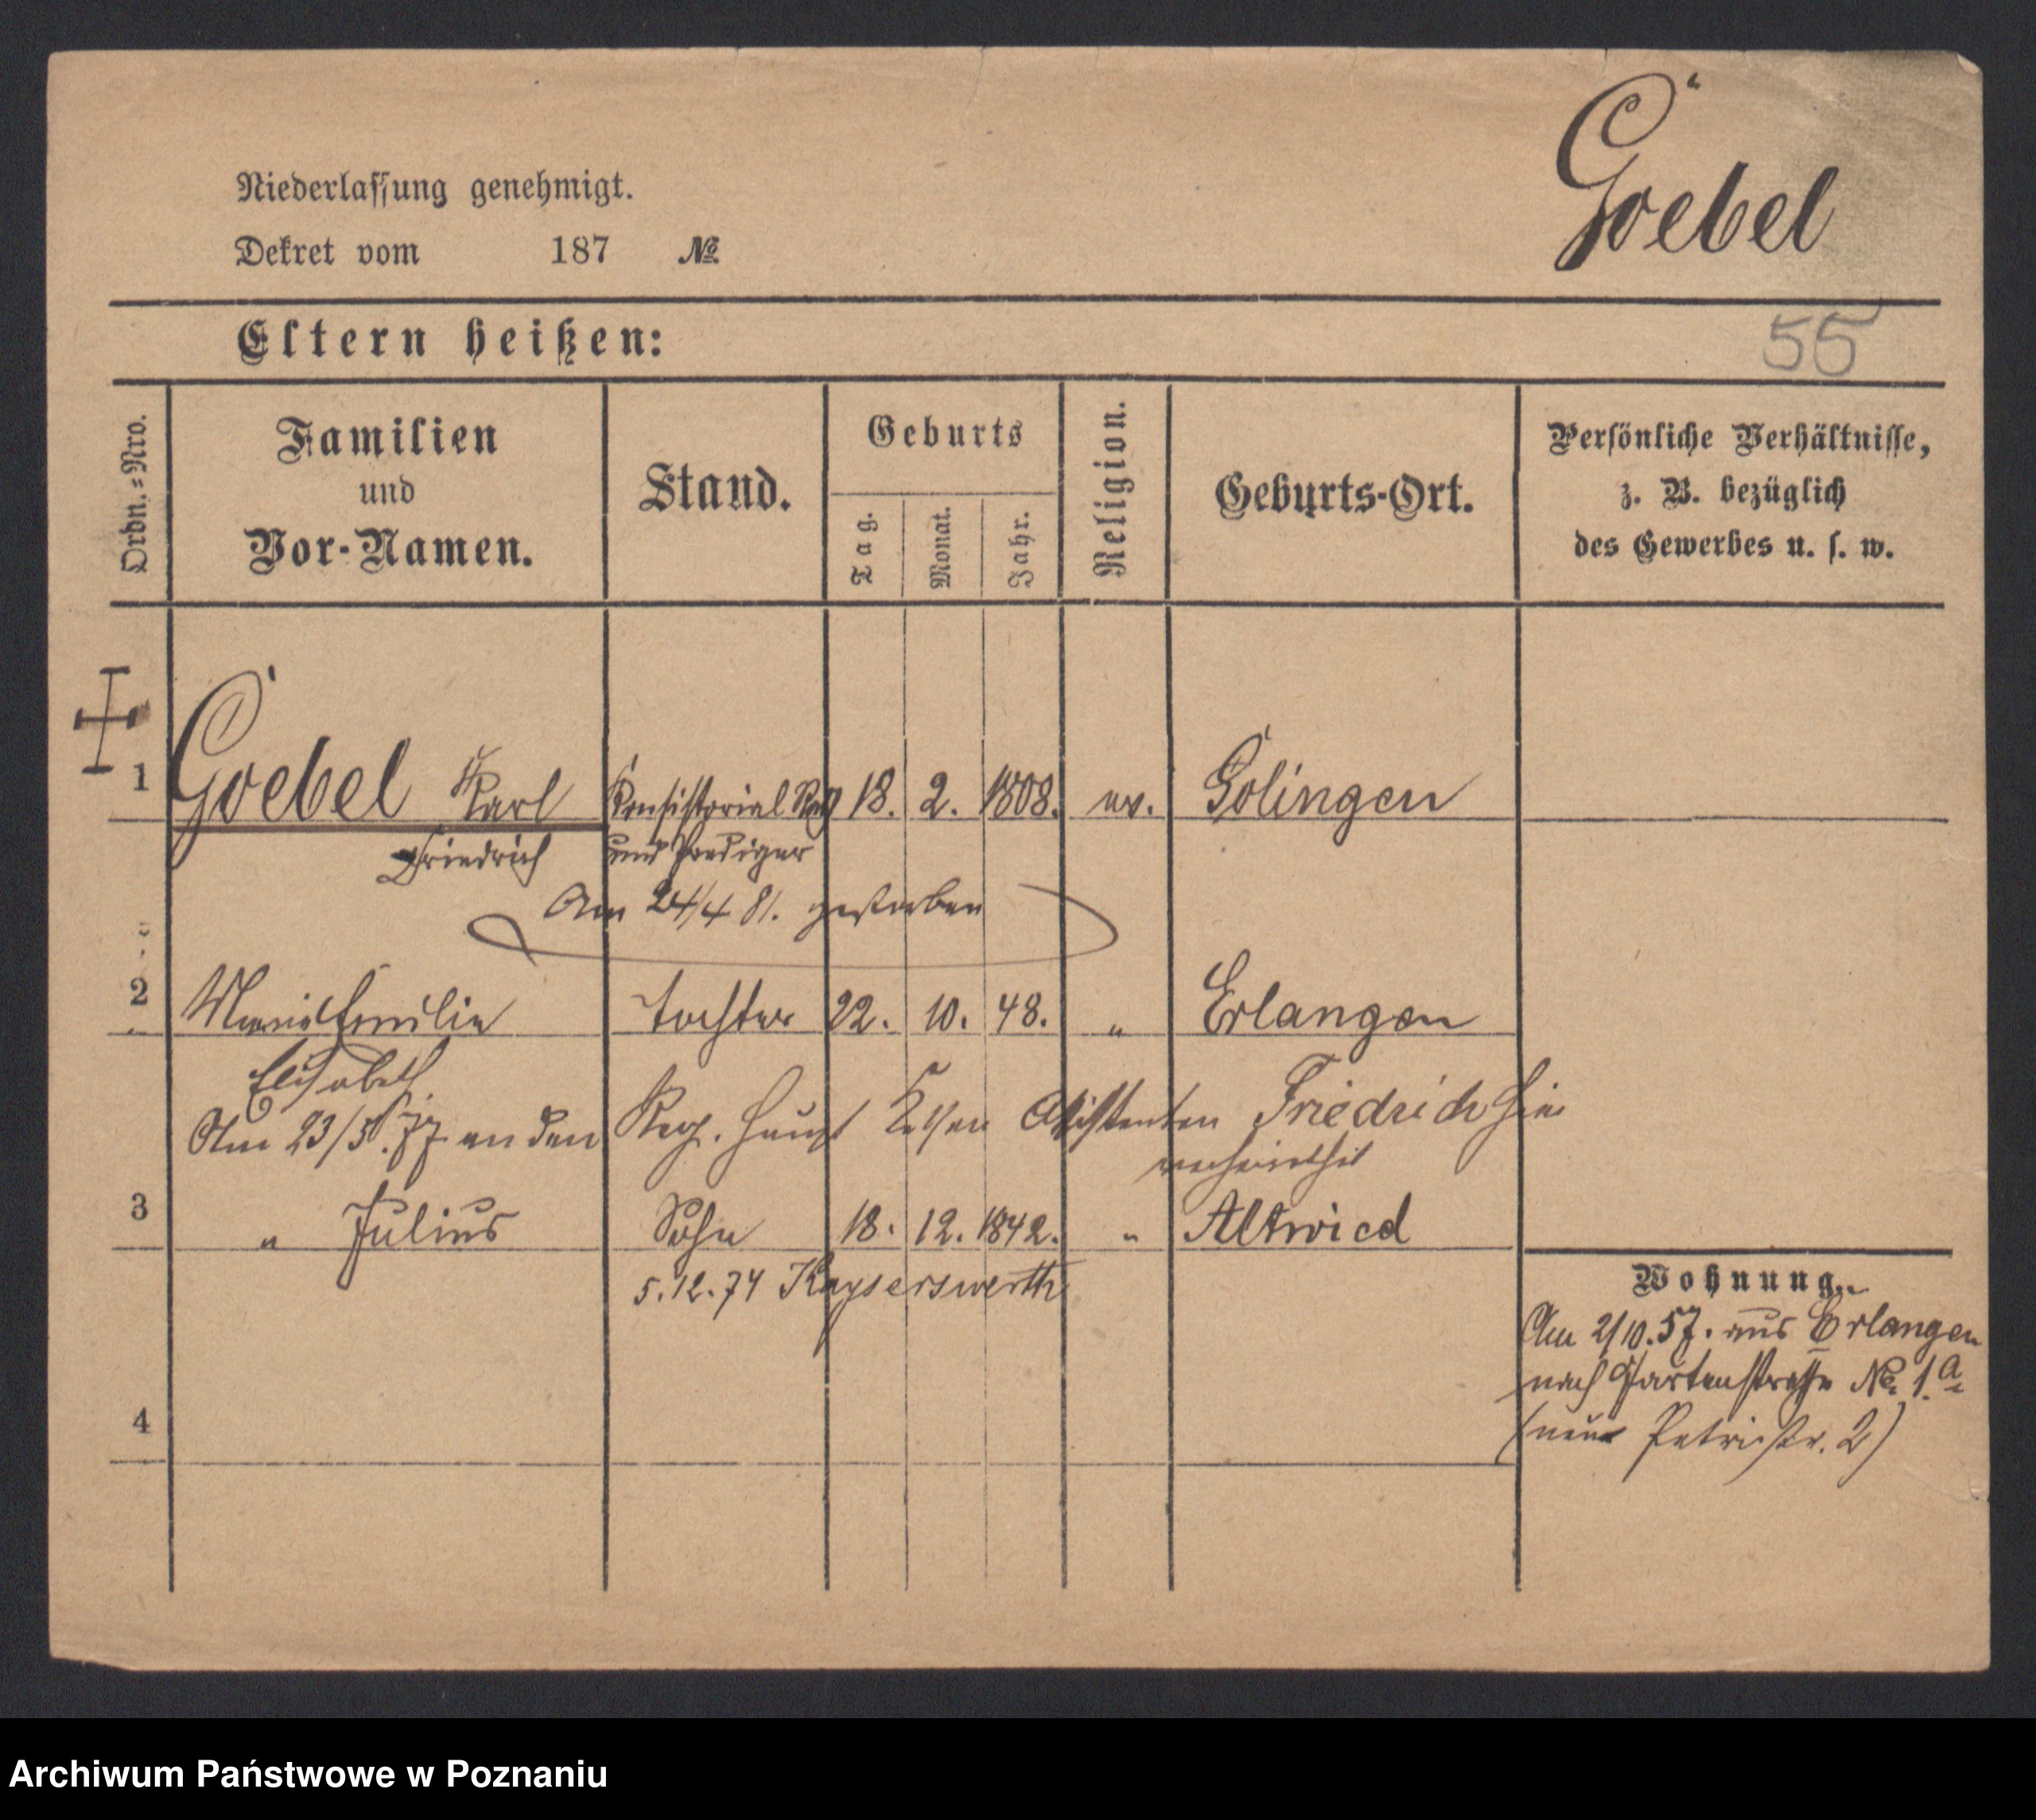 Goebel
Niederlassung genehmigt.
Dekret vom 187 №
Eltern heißen:
55
Ordn.=Nro.
Familien
und
Vor-Namen.
Stand.
Geburts
Tag.
Monat.
Jahr.
Religion.
Geburts-Ort.
Persönliche Verhältnisse,
z. B. bezüglich
des Gewerbes u. s. w.
1 Goebel Karl Konsistorial Rath 18. 2. 1808. ev. Solingen
Friedrich und Prediger
Am 24/4 81. gestorben
2 Marie Emilie Tochter 22. 10. 48. " Erlangen
Elisabeth
Am 23/5. 77 an den Reg. Haupt Kassen Assistenten Friedrich
verheirathet
3 " Julius Sohn 18. 12. 1842. " Altwied
5.12.74 Kayserswerth
Wohnung.
Am 2/10.57. aus Erlangen
nach Gartenstraße No. 1.a
(neue Petristr. 2)
4
Archiwum Państwowe w Poznaniu